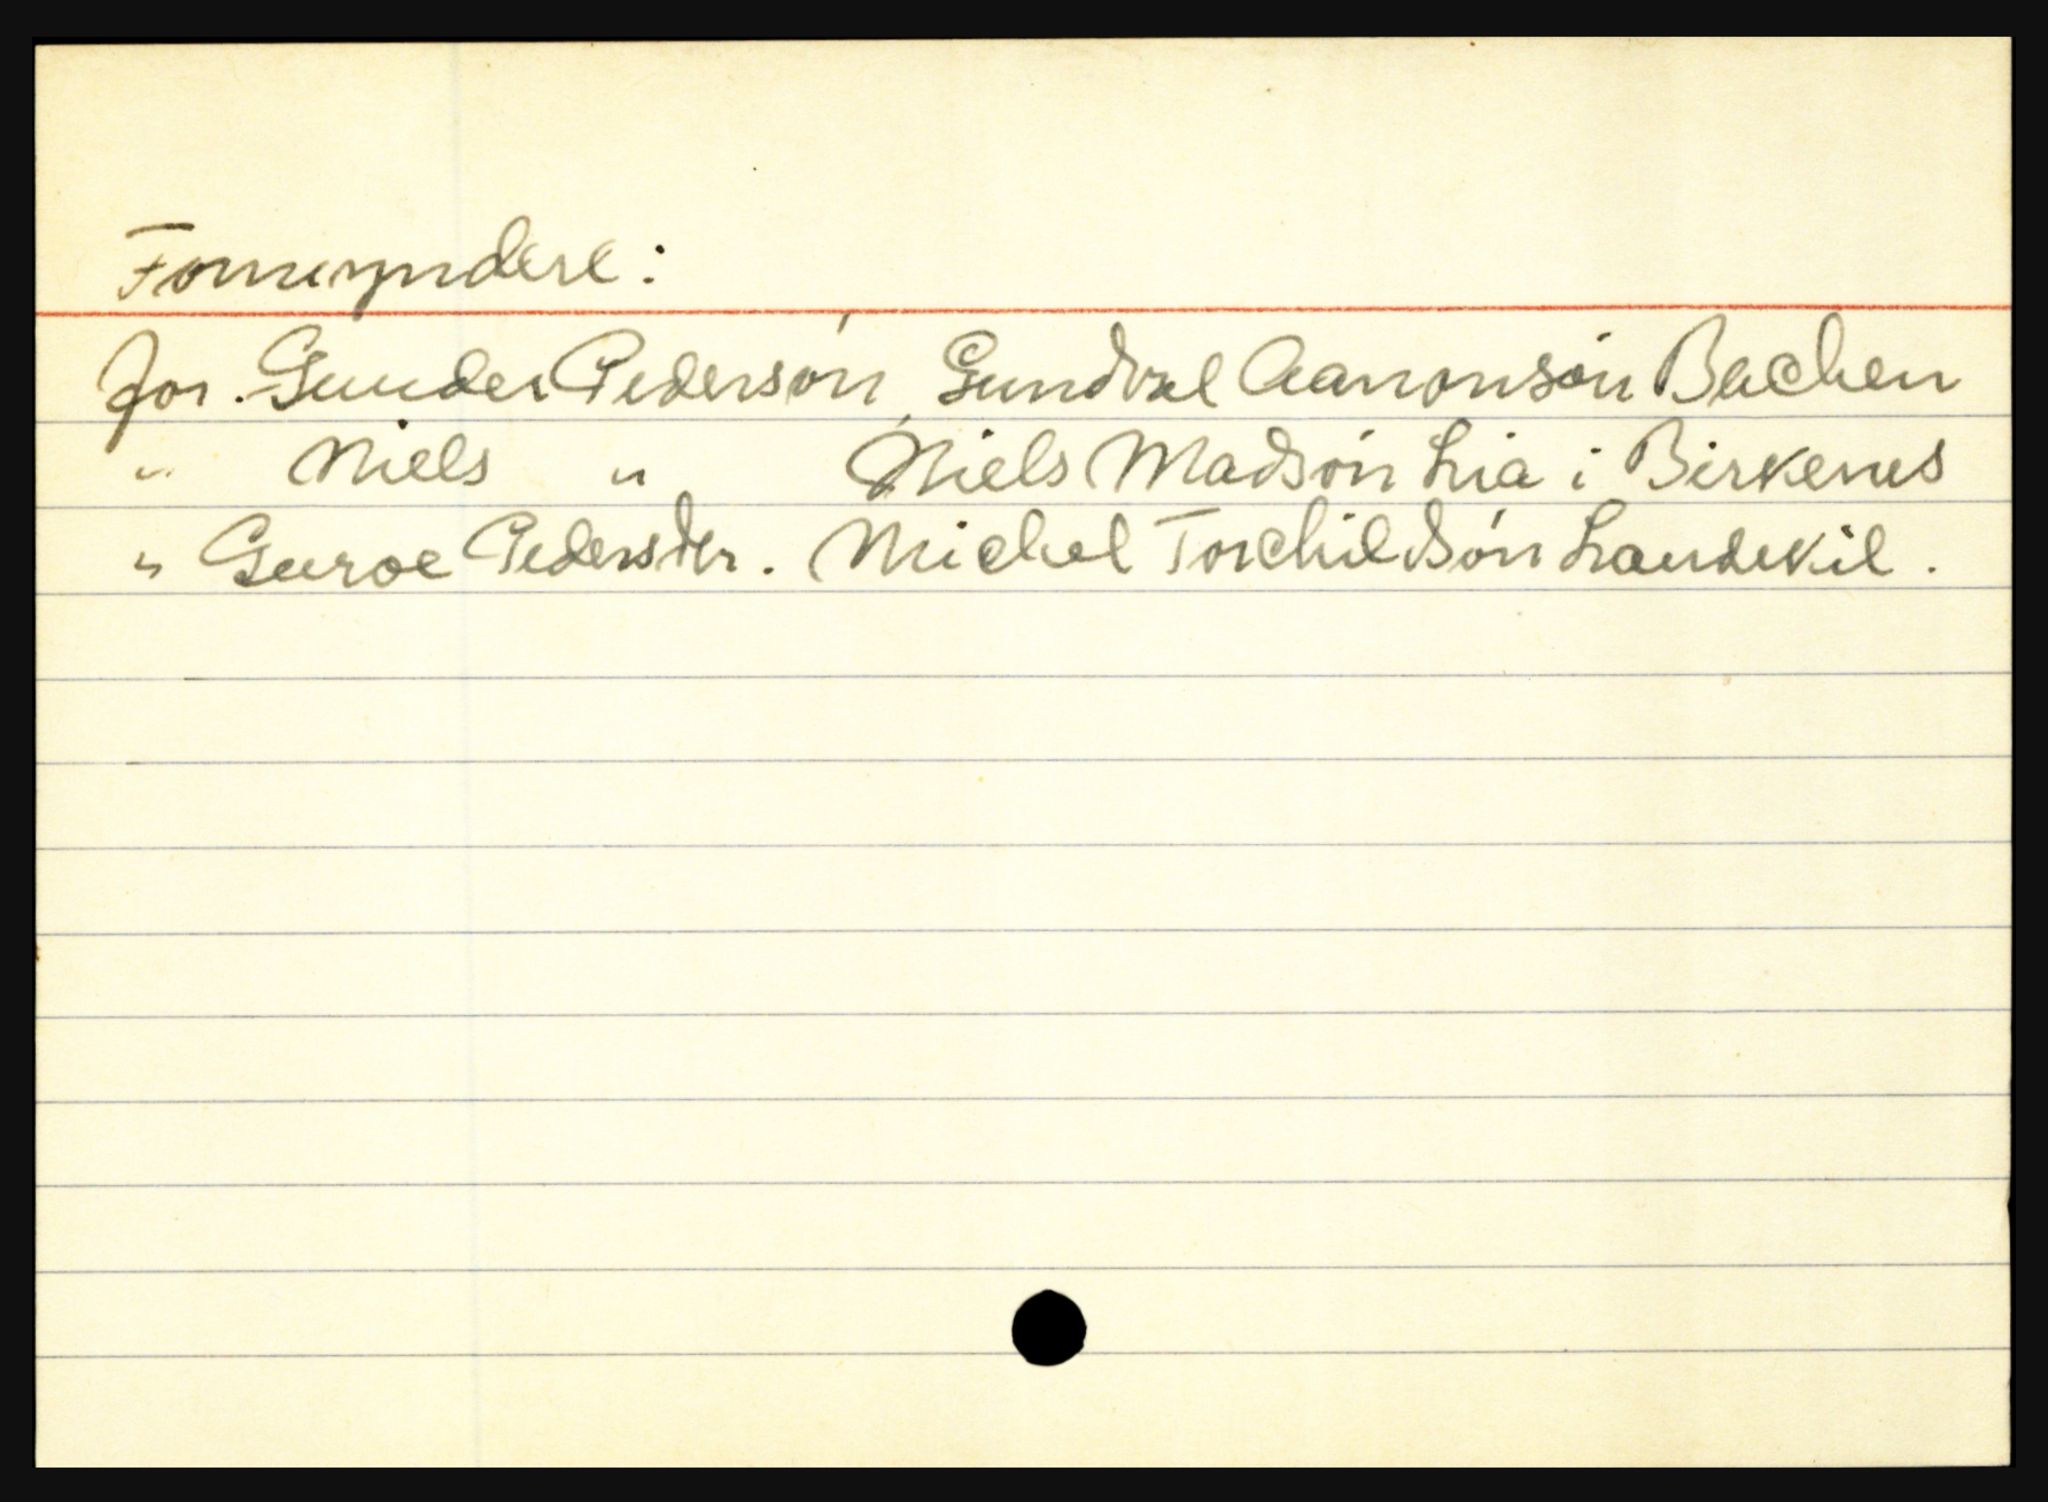 Formyndere:
for. Gunder Pedersøn, Gundval Aanonsøn Bachen
" Niels " Niels Madsøn Lia i Birkenes
" Guroe Pedersdtr. Michel Torchildsøn Landvikil.